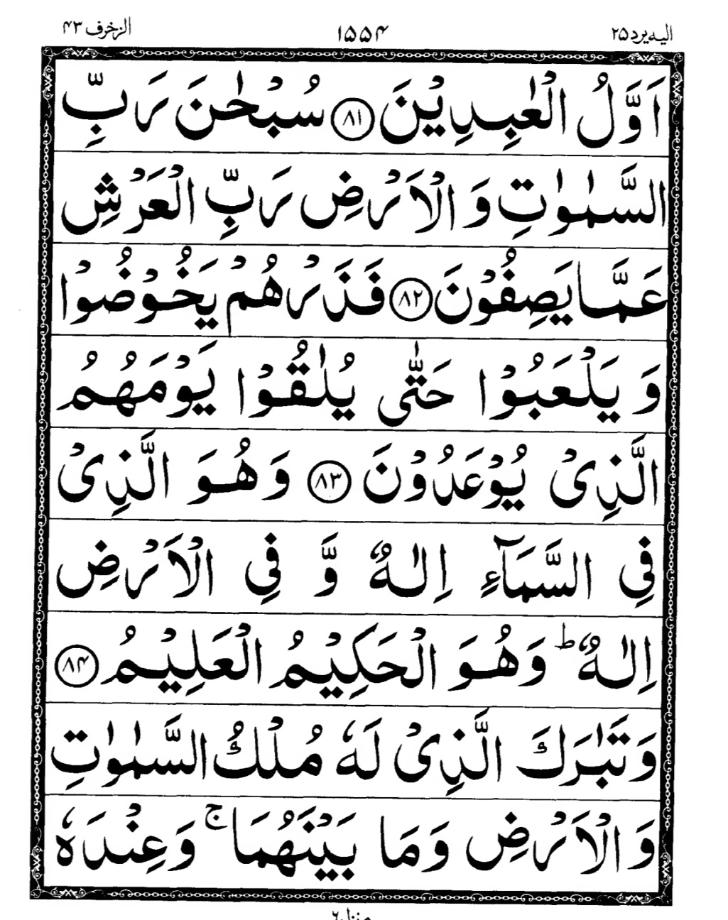 الزخرف ۴۳ ۱۵۵۴ الیه یرد ۲۵
اَوَّلُ الْعٰبِدِیْنَ ﴿۸۱﴾ سُبْحٰنَ رَبِّ
السَّمٰوٰتِ وَ الْاَرْضِ رَبِّ الْعَرْشِ
عَمَّا یَصِفُوْنَ ﴿۸۲﴾ فَذَرْهُمْ یَخُوْضُوْا
وَ یَلْعَبُوْا حَتّٰی یُلٰقُوْا یَوْمَهُمُ
الَّذِیْ یُوْعَدُوْنَ ﴿۸۳﴾ وَ هُوَ الَّذِیْ
فِی السَّمَآءِ اِلٰهٌ وَّ فِی الْاَرْضِ
اِلٰهٌ ؕ وَ هُوَ الْحَكِیْمُ الْعَلِیْمُ ﴿۸۴﴾
وَ تَبٰرَكَ الَّذِیْ لَهٗ مُلْكُ السَّمٰوٰتِ
وَ الْاَرْضِ وَ مَا بَیْنَهُمَا ۚ وَ عِنْدَهٗ
منزل ۶